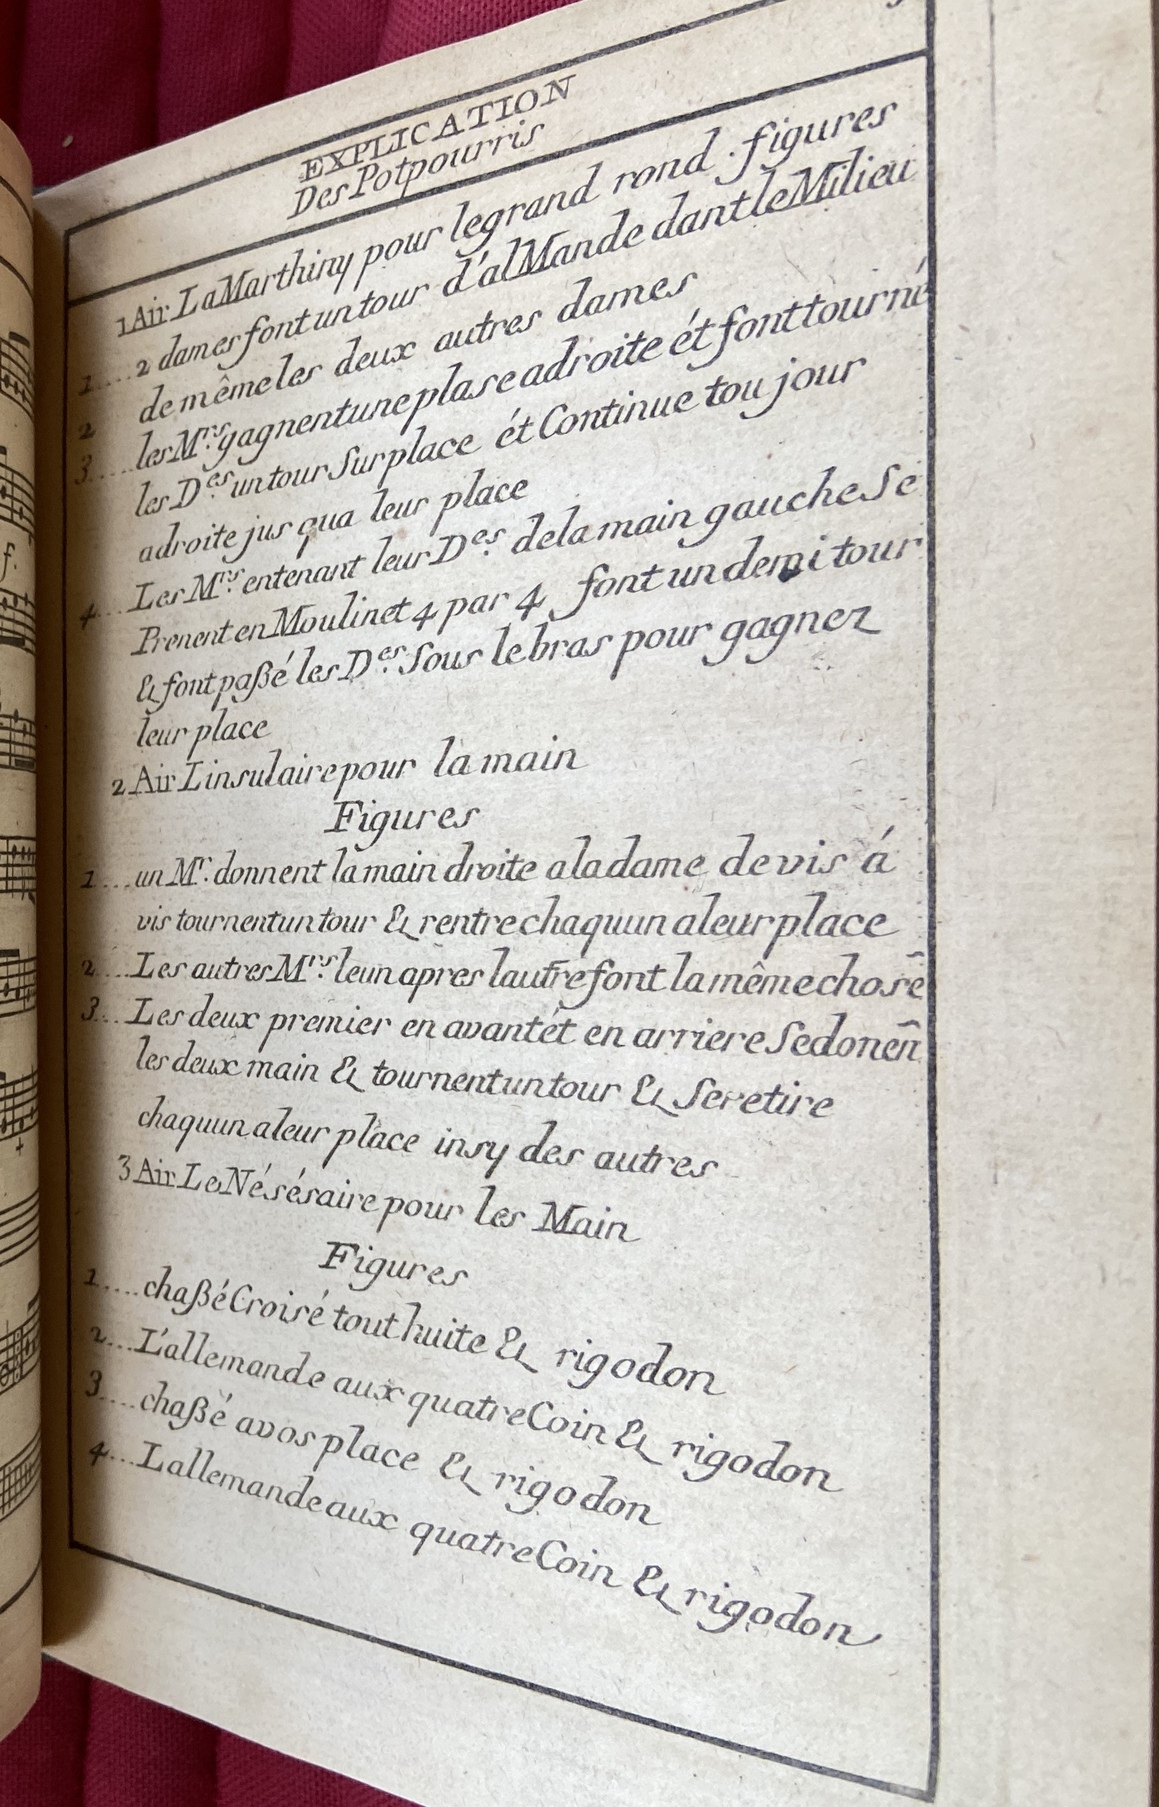 EXPLICATION
Des Potpourris
1 Air La Marthiny pour le grand rond. figures
1.... 2 dames font un tour d'álMande dant le Milieu
2 de même les deux autres dames
3.... les M.rs gagnent une plase a droite ét font tourné
les D.es un tour Sur place ét Continue tou jour
a droite jus qua leur place
4... Les M.rs en tenant leur D.es de la main gauche Se
Prenent en Moulinet 4 par 4 font un demi tour
& font paßé les D.es Sous le bras pour gagnez
leur place
2 Air L insulaire pour la main
Figures
1... un M.r donnent la main droite a la dame de vis á
vis tournent un tour & rentre chaquun a leur place
2.... Les autres M.rs leun apres lautre font la même chose
3... Les deux premier en avant ét en arriere Se donen̄
les deux main & tournent un tour & Se retire
chaquun a leur place insy des autres
3 Air Le Nésésaire pour les Main
Figures
1.... chaßé Croisé tout huite & rigodon
2... L'allemande aux quatre Coin & rigodon
3.... chaßé a vos place & rigodon
4... Lallemande aux quatre Coin & rigodon
f.